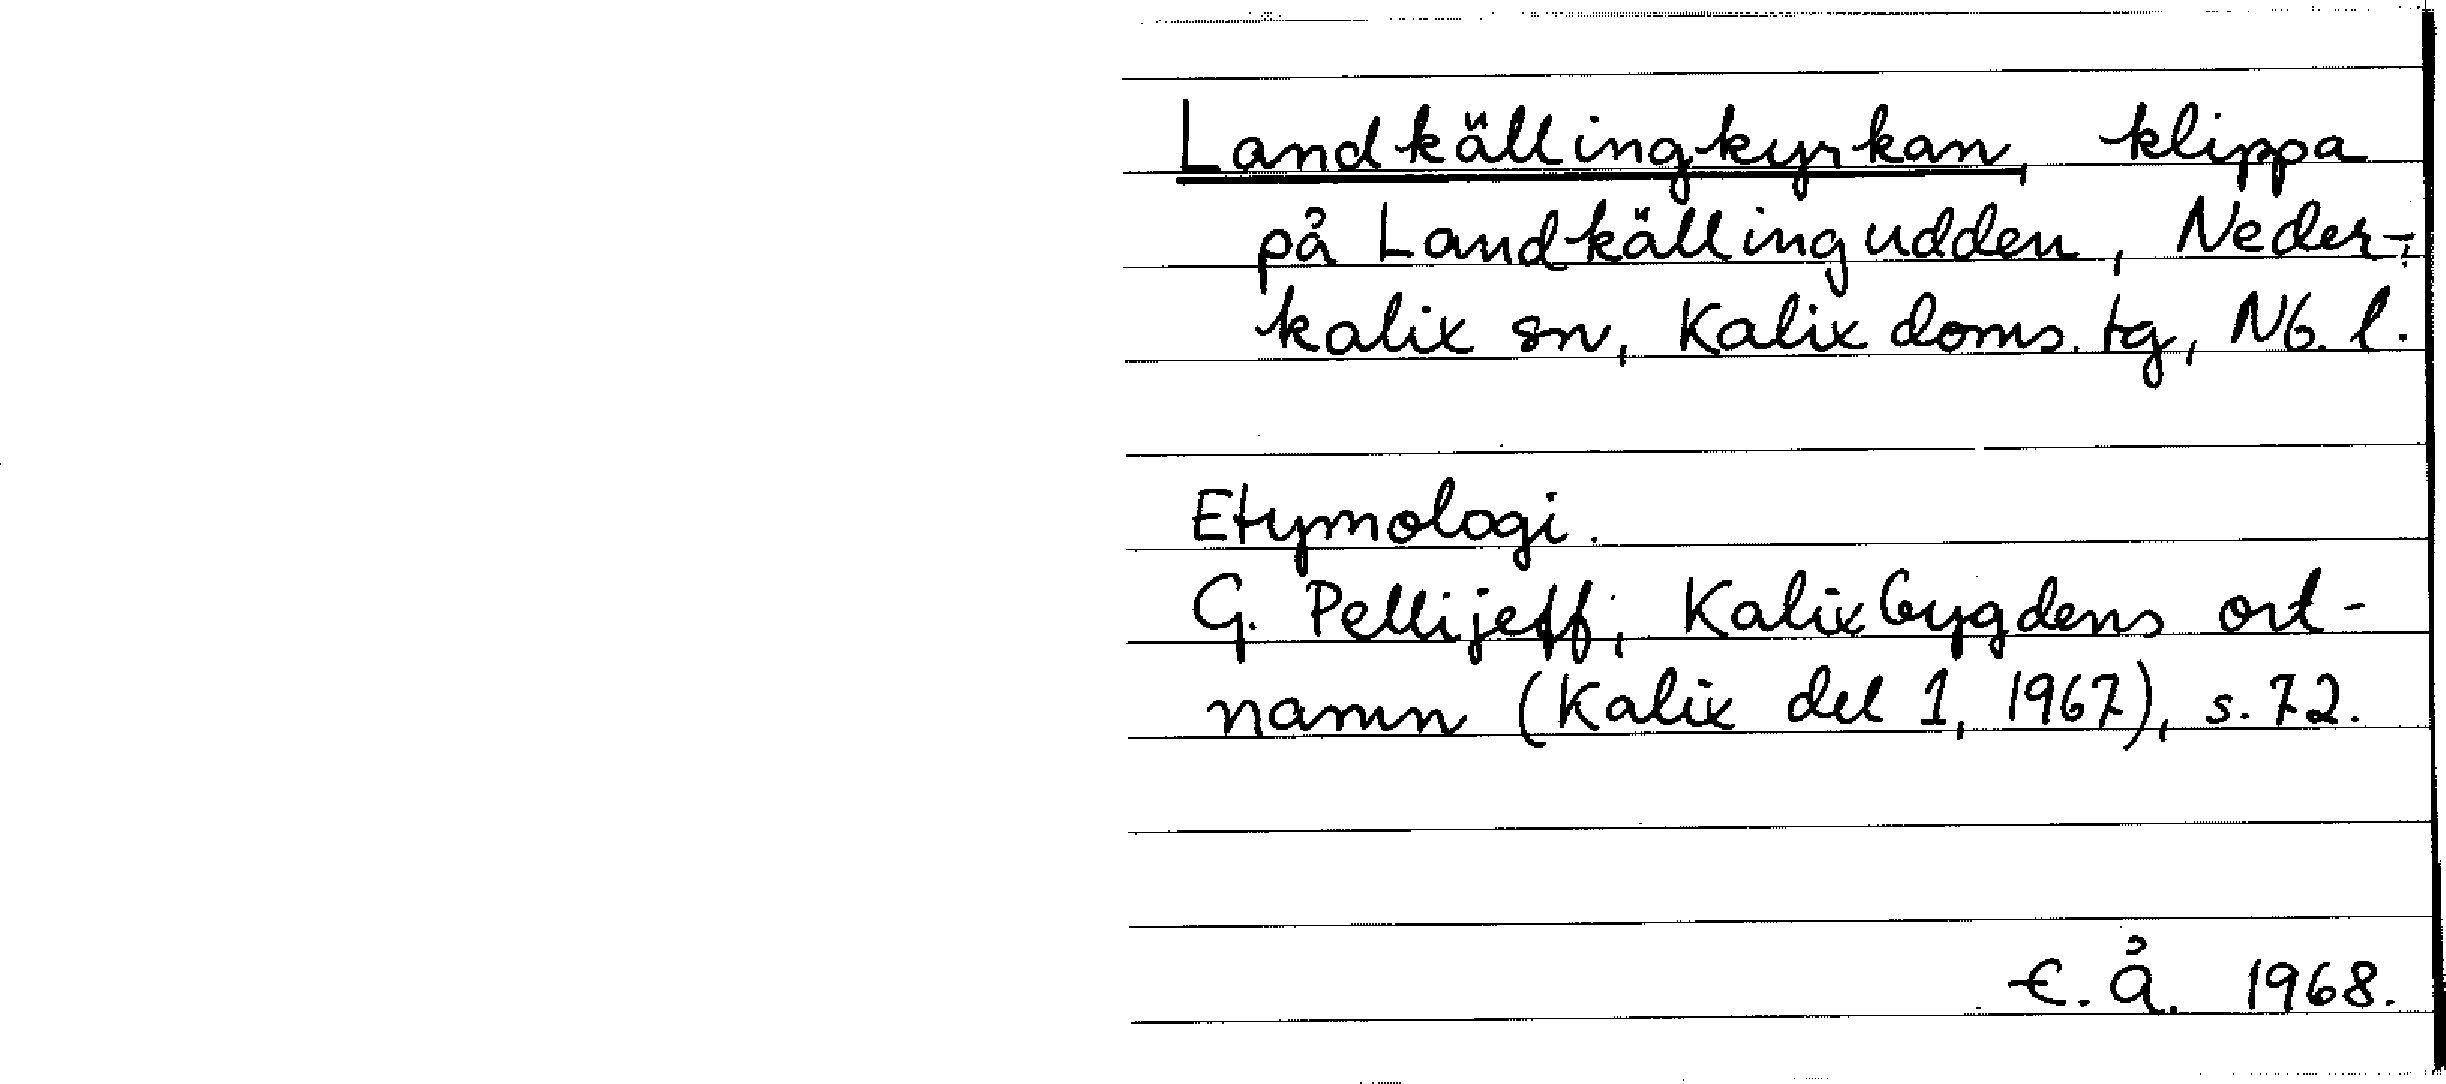 Landkällingkyrkan, klippa
på Landkällingudden, Neder-
kalix sn, Kalix doms. tg, Nb. l.
Etymologi.
G. Pellijeff, Kalixbygdens ort-
namn (Kalix del 1, 1967), s. 72.
E. Å. 1968.